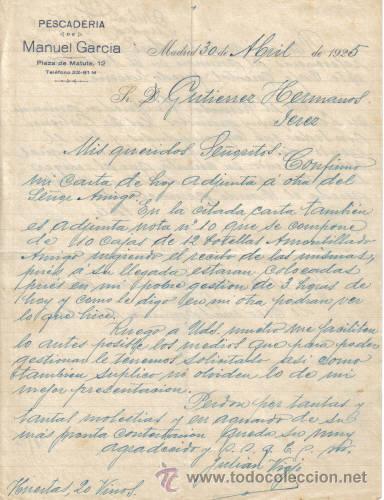 PESCADERIA
DE
Manuel Garcia
Plaza de Matute, 12
Teléfono 22-81 M
Madrid 30 de Abril de 1925
Sr. D. Gutierrez Hermanos.
Jerez
Mis queridos Señoritos. Confirmo
mi carta de hoy adjunta á otra del
Señor Amigo.
En la citada carta tambien
es adjunta nota nº 10 que se compone
de 10 cajas de 12 botellas Amontillado
Amigo el de las mismas,
pues á su llegada estaran colocadas
pues en mi pobre gestion de 3 horas de
hoy y como le digo en mi otra podran ver
lo que hice.
Ruego á Uds. me faciliten
lo antes posible los medios que para poder
gestionar le tenemos solicitado asi como
tambien suplico no olviden lo de mi
mejor presentacion.
Perdon por tantas y
tantas molestias y en aguardo de su
mas pronta contestacion queda su muy
agradecido y
Julian
Huertas, 20 Vinos.
todocoleccion
todocoleccion.net